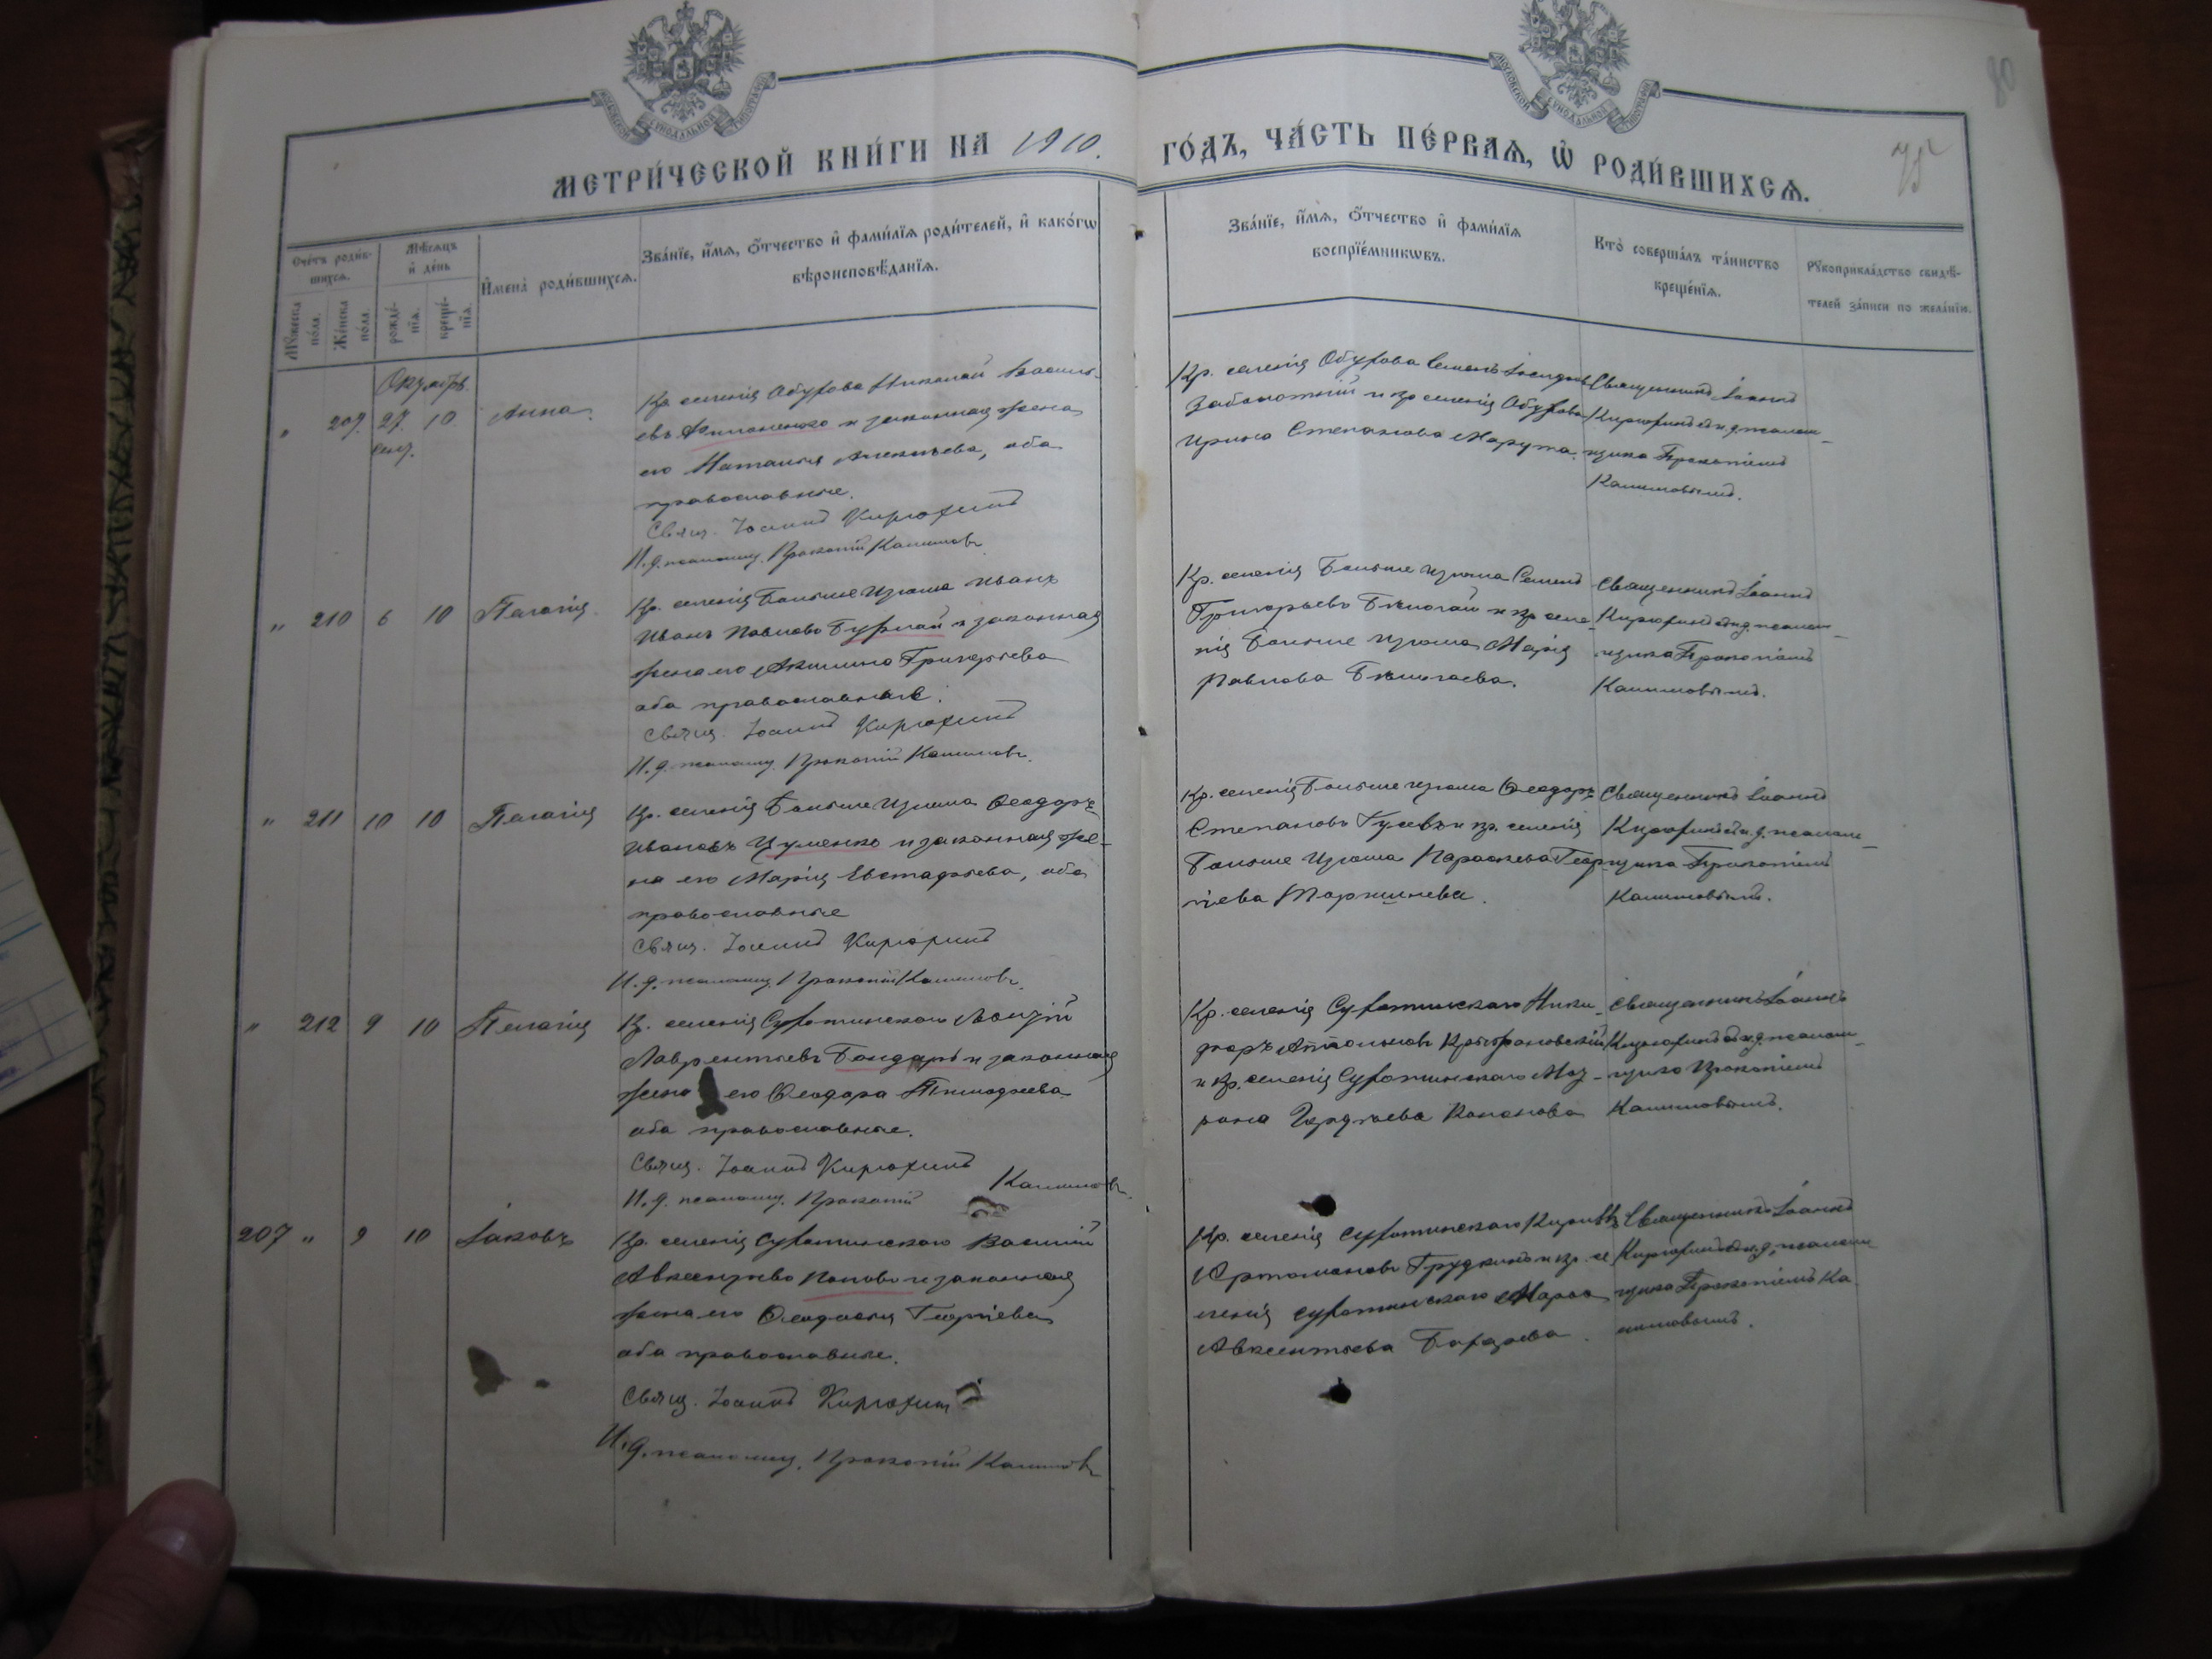 МОСКОВСКОЙ СѴНОДАЛЬНОЙ ТИПОГРАФІИ
МОСКОВСКОЙ СѴНОДАЛЬНОЙ ТИПОГРАФІИ
80
МЕТРИ́ЧЕСКОЙ КНИ́ГИ НА 1910.
ГО́ДЪ, ЧА́СТЬ ПЕ́РВАЯ, Ѽ РОДИ́ВШИХСЯ.
75
Сче́тъ роди́в-
шихся.
Мѣ́сяцъ
и҆ де́нь
Мꙋ́жеска
по́ла.
Же́нска
по́ла.
рожде́-
нїя.
креще́-
нїя.
И҆мена̀ роди́вшихся.
Зва́нїе, и҆́мя, ѻ҆́тчество и҆ фами́лїя роди́телей, и҆ како́гѡ
вѣроисповѣ́данїя.
Зва́нїе, и҆́мя, ѻ҆́тчество и҆ фами́лїя
воспрїе́мникѡвъ.
Кто̀ соверша́лъ та́инство
креще́нїя.
Рꙋкоприкла́дство свидѣ́-
телей за́писи по жела́нїю.
Октябрь.
" 209. 27. 10. Анна.
сент.
Кр. селенія Обуфова Николай Василь-
евъ и законная жена
его Наталья Алексѣева, оба
православные.
Свящ. Іоаннъ Кирюхинъ
И. д. псаломщ. Прокопій Калимовъ
Кр. селенія Обуфова Семенъ
Заболотній и кр селенія Обуфова
Ирина Степанова Марута.
Священникъ Іоаннъ
Кирюхинъ съ и. д. псалом-
щика Прокопіемъ
Калимовымъ.
" 210 6 10 Пелагія.
Кр. селенія Больше Изюма Иванъ
Иванъ Павловъ Бурлай и законная
жена его Акилина Григорьева
оба православные.
Свящ. Іоаннъ Кирюхинъ
И. д. псаломщ. Прокопій Калимовъ.
Кр. селенія Больше Изюма Семенъ
Григорьевъ и кр. селе-
нія Больше Изюма Марія
Павлова
Священникъ Іоаннъ
Кирюхинъ съ и. д. псалом-
щика Прокопіемъ
Калимовымъ.
" 211 10 10 Пелагія
Кр. селенія Больше Изюма Ѳеодоръ
Ивановъ Цуменко и законная же-
на его Марія Евстафьева, оба
православные
Свящ. Іоаннъ Кирюхинъ
И. д. псаломщ. Прокопій Калимовъ.
Кр. селенія Больше Изюма Ѳеодоръ
Степановъ Гусевъ и кр. селенія
Больше Изюма Параскева Геор-
гіева
Священникъ Іоаннъ
Кирюхинъ съ и. д. псалом-
щика Прокопіемъ
Калимовымъ.
" 212 9 10 Пелагія
Кр. селенія Суфотинскаго
Лаврентьевъ Бондарь и законная
жена его Ѳеодора Тимофеева
оба православные.
Свящ. Іоаннъ Кирюхинъ
И. д. псаломщ. Прокопій Калимовъ.
Кр. селенія Суфотинскаго Ники-
форъ
и кр. селенія Суфотинскаго Мат-
рона Кононова
Священникъ Іоаннъ
Кирюхинъ съ и. д. псалом-
щика Прокопіемъ
Калимовымъ.
207 " 9 10 Іаковъ
Кр. селенія Суфотинскаго Василій
Авксентьевъ Поповъ и законная
жена его Ѳеодосія Георгіева
оба православные.
Свящ. Іоаннъ Кирюхинъ
И. д. псаломщ. Прокопій Калимовъ
Кр. селенія Суфотинскаго
Грудкинъ и кр. се
ленія Суфотинскаго
Авксентьева
Священникъ Іоаннъ
Кирюхинъ съ и. д. псалом
щика Прокопіемъ Ка
лимовымъ.